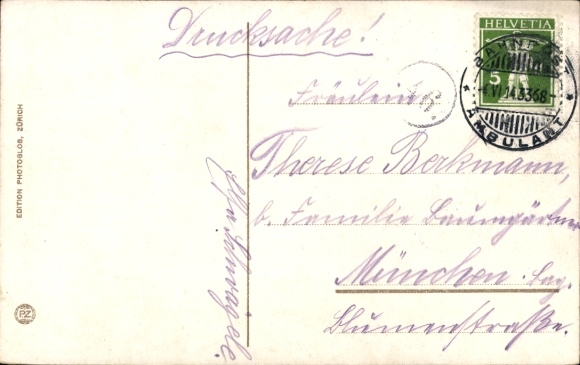 Drucksache!
HELVETIA
5
BAHNPOST
-4.VI.14.3368-
AMBULANT
16.
Fräulein
Therese Berkmann,
b. Familie Baumgärtner
München. Bay.
Blumenstraße.
EDITION PHOTOGLOB, ZÜRICH
PZ